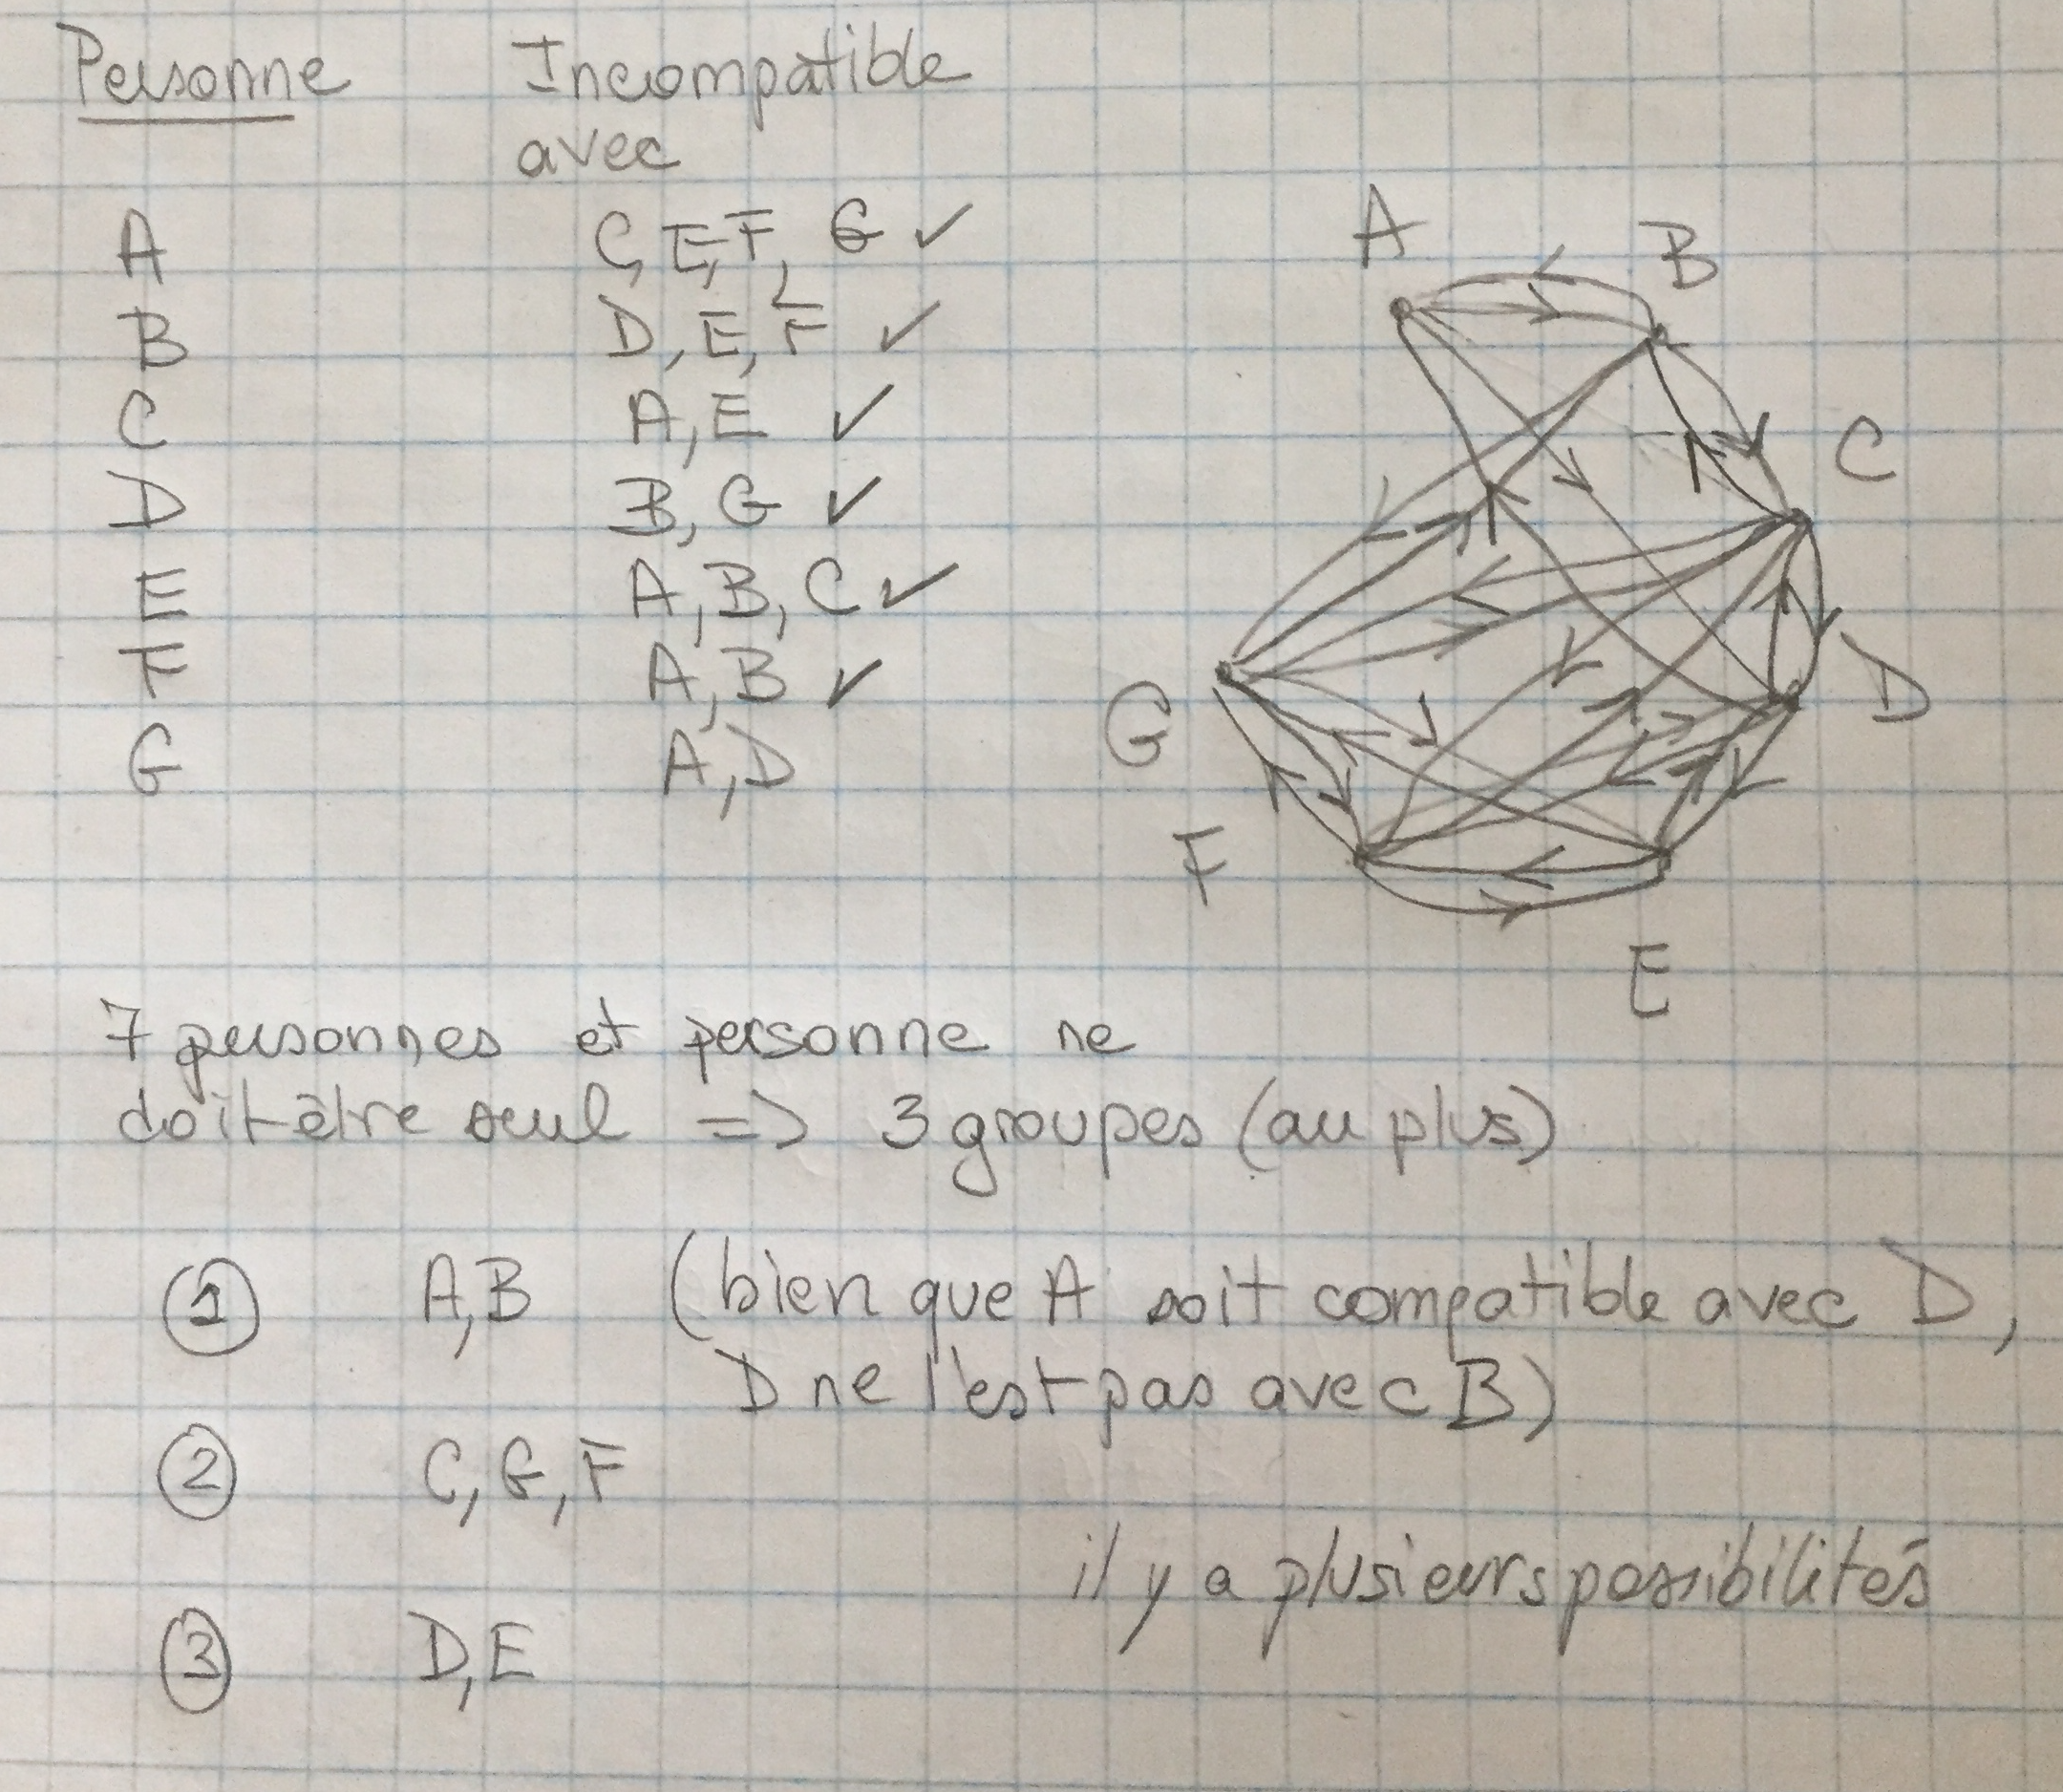 Personne Incompatible
avec
A C, E, F, G ✓
B D, E, F ✓
C A, E ✓
D B, G ✓
E A, B, C ✓
F A, B ✓
G A, D
A
B
C
D
G
F
E
7 personnes et personne ne
doit être seul => 3 groupes (au plus)
1 A, B (bien que A soit compatible avec D,
D ne l'est pas avec B)
2 C, G, F
il y a plusieurs possibilités
3 D, E